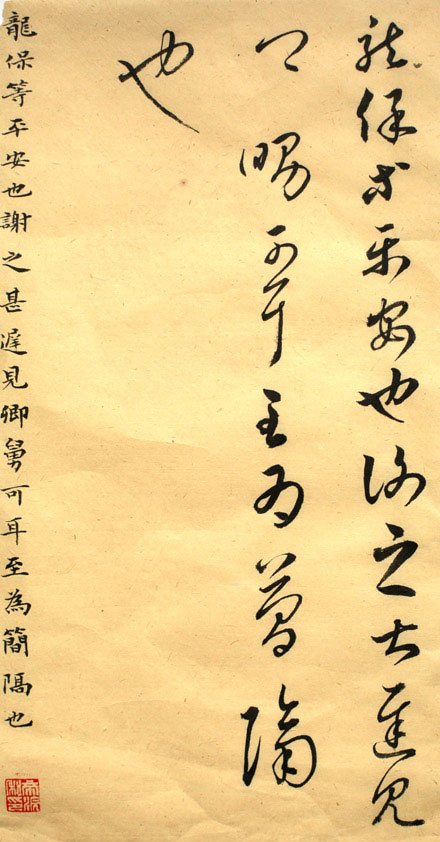 龍保等平安也謝之甚遲見
卿舅可耳至為簡隔
也
龍保等平安也謝之甚遲見卿舅可耳至為簡隔也